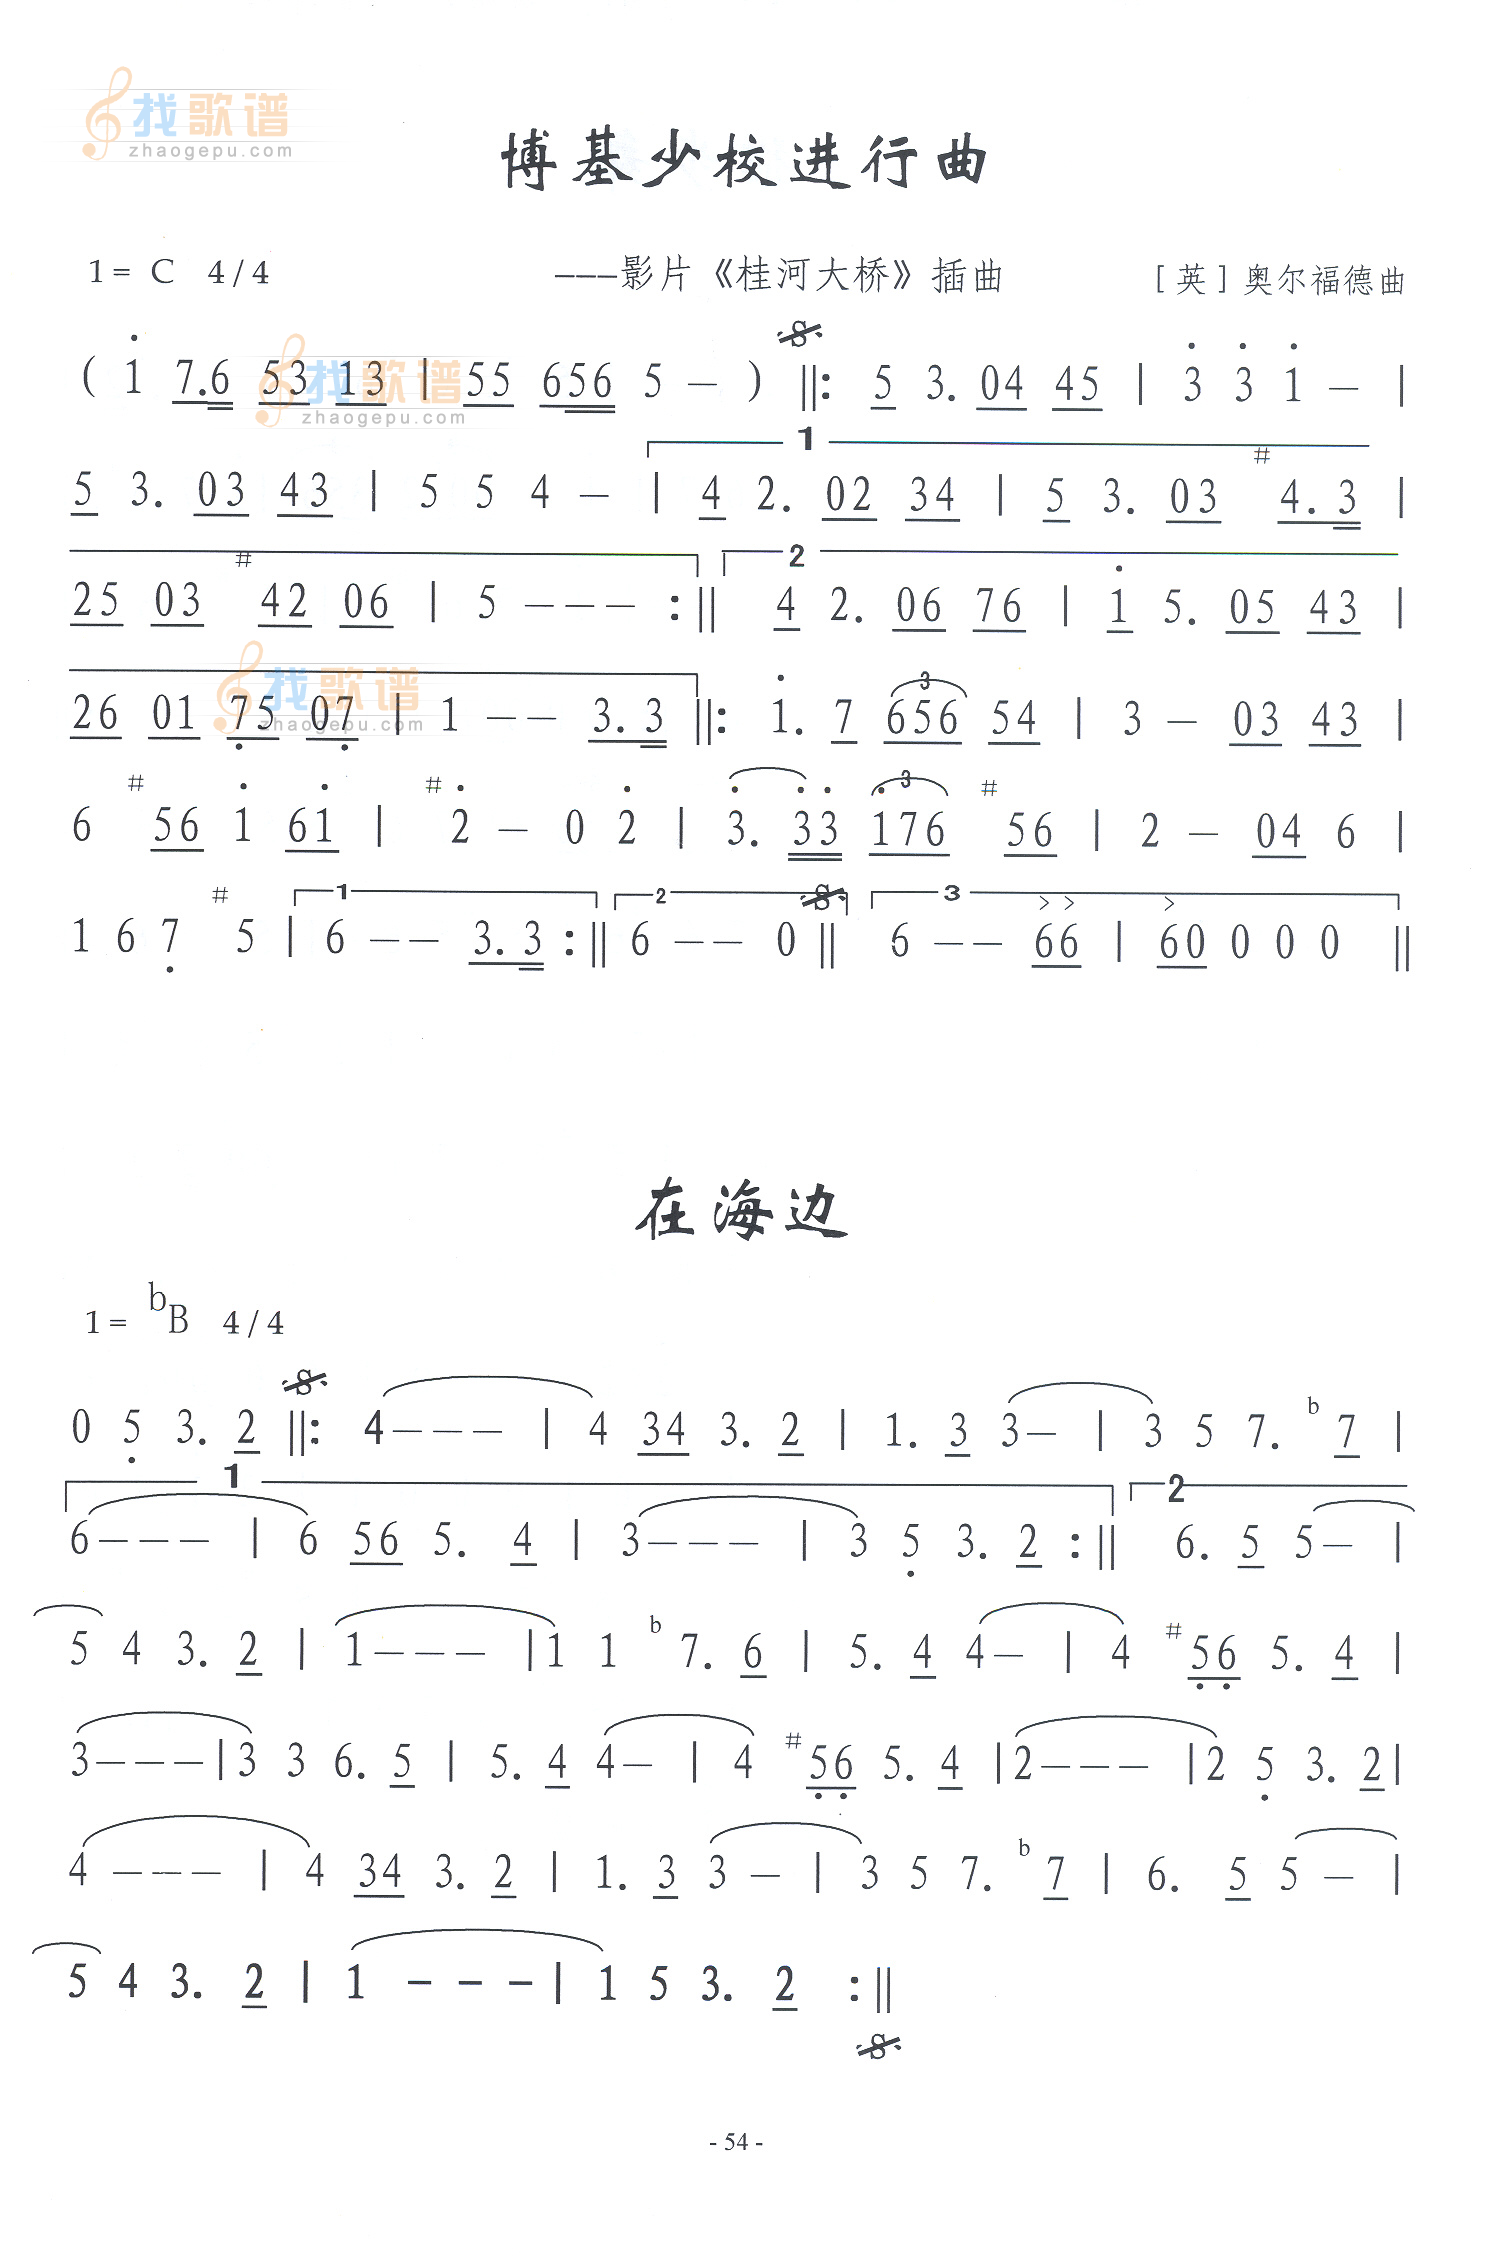 找歌谱
zhaogepu.com
博基少校进行曲
1= C 4/4 ---影片《桂河大桥》插曲 [英]奥尔福德曲
( i 7.6 53 13 | 55 656 5 — ) 𝄋 ||: 5 3. 04 45 | 3̇ 3̇ i — |
找歌谱
zhaogepu.com
1
5 3. 03 43 | 5 5 4 — | 4 2. 02 34 | 5 3. 03 #4.3 |
2
25 03 #42 06 | 5 — — — :|| 4 2. 06 76 | i 5. 05 43 |
找歌谱
zhaogepu.com
26 01 7̣5̣ 07̣ | 1 — — 3.3 ||: i. 7 3 656 54 | 3 — 03 43 |
6 #56 i 6i | #2̇ — 0 2̇ | 3̇. 3̇3̇ 3 i76 #56 | 2 — 04 6 |
1 2 𝄋 3 > > >
1 6 7̣ #5 | 6 — — 3.3 :|| 6 — — 0 || 6 — — 66 | 60 0 0 0 ||
在海边
1= bB 4/4
0 5̣ 3. 2 𝄋 ||: 4 — — — | 4 34 3. 2 | 1. 3 3 — | 3 5 7. b7 |
1 2
6 — — — | 6 56 5. 4 | 3 — — — | 3 5̣ 3. 2 :|| 6. 5 5 — |
5 4 3. 2 | 1 — — — | 1 1 b7. 6 | 5. 4 4 — | 4 #5̣6̣ 5. 4 |
3 — — — | 3 3 6. 5 | 5. 4 4 — | 4 #5̣6̣ 5. 4 | 2 — — — | 2 5̣ 3. 2 |
4 — — — | 4 34 3. 2 | 1. 3 3 — | 3 5 7. b7 | 6. 5 5 — |
5 4 3. 2 | 1 — — — | 1 5 3. 2 :||
𝄋
- 54 -